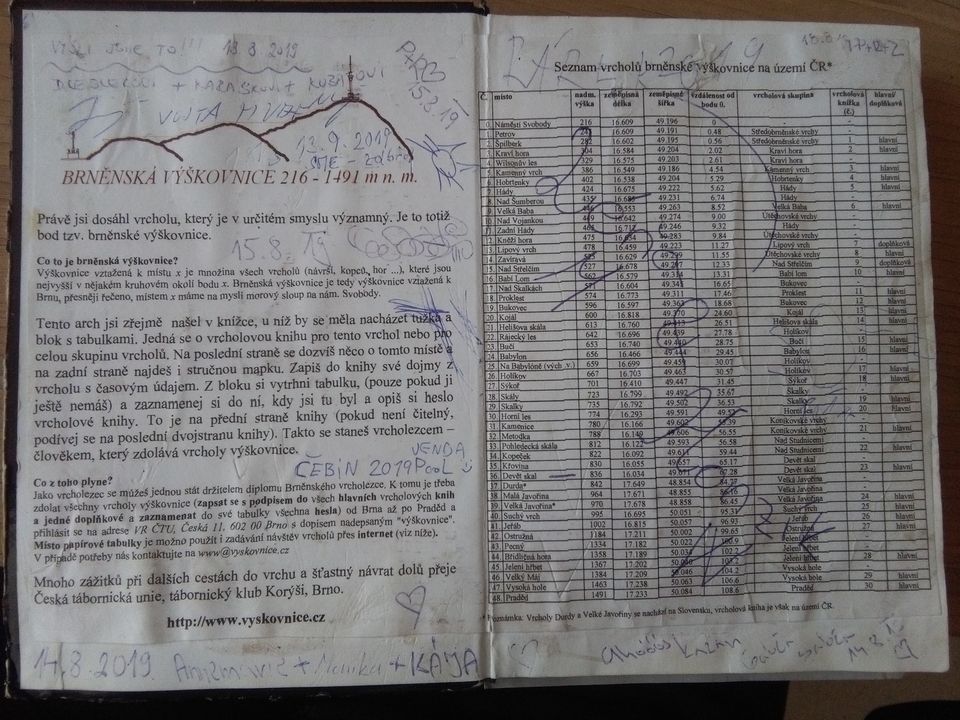 VYŠLI JSME TO!!! 18 8. 2019
13.9.2019
BRNĚNSKÁ VÝŠKOVNICE 216 - 1491 m n. m.
Právě jsi dosáhl vrcholu, který je v určitém smyslu významný. Je to totiž
bod tzv. brněnské výškovnice.
15.8. 19
Co to je brněnská výškovnice?
Výškovnice vztažená k místu x je množina všech vrcholů (návrší, kopců, hor ...), které jsou
nejvyšší v nějakém kruhovém okolí bodu x. Brněnská výškovnice je tedy výškovnice vztažená k
Brnu, přesněji řečeno, místem x máme na mysli morový sloup na nám. Svobody.
Tento arch jsi zřejmě našel v knížce, u níž by se měla nacházet tužka a
blok s tabulkami. Jedná se o vrcholovou knihu pro tento vrchol nebo pro
celou skupinu vrcholů. Na poslední straně se dozvíš něco o tomto místě a
na zadní straně najdeš i stručnou mapku. Zapiš do knihy své dojmy z
vrcholu s časovým údajem. Z bloku si vytrhni tabulku, (pouze pokud ji
ještě nemáš) a zaznamenej si do ní, kdy jsi tu byl a opiš si heslo
vrcholové knihy. To je na přední straně knihy (pokud není čitelný,
podívej se na poslední dvojstranu knihy). Takto se staneš vrcholezcem –
člověkem, který zdolává vrcholy výškovnice.
VENDA
ČEBÍN 2019
Co z toho plyne?
Jako vrcholezec se můžeš jednou stát držitelem diplomu Brněnského vrcholezce. K tomu je třeba
zdolat všechny vrcholy výškovnice (zapsat se s podpisem do všech hlavních vrcholových knih
a jedné doplňkové a zaznamenat do své tabulky všechna hesla) od Brna až po Praděd a
přihlásit se na adrese VR ČTU, Česká 11, 602 00 Brno s dopisem nadepsaným "výškovnice".
Místo papírové tabulky je možno použít i zadávání návštěv vrcholů přes internet (viz níže).
V případě potřeby nás kontaktujte na www@vyskovnice.cz
Mnoho zážitků při dalších cestách do vrchu a šťastný návrat dolů přeje
Česká tábornická unie, tábornický klub Korýši, Brno.
http://www.vyskovnice.cz
14.8.2019 + Monika + KÁJA
Seznam vrcholů brněnské výškovnice na území ČR*
Č. místo nadm. výška zeměpisná délka zeměpisná šířka vzdálenost od bodu 0. vrcholová skupina vrcholová knížka (č.) hlavní/ doplňková
0. Náměstí Svobody 216 16.609 49.196 0
1. Petrov 16.609 49.191 0.48 Středobrněnské vrchy
2. Špilberk 282 16.602 49.195 0.56 Středobrněnské vrchy 1 hlavní
3. Kraví hora 304 16.584 49.204 2.02 Kraví hora 2 hlavní
4. Wilsonův les 329 16.575 49.203 2.61 Kraví hora
5. Kamenný vrch 386 16.549 49.186 4.54 Kamenný vrch 3 hlavní
6. Hobrtenky 402 16.538 49.204 5.29 Hobrtenky 4 hlavní
7. Hády 424 16.675 49.222 5.62 Hády 5 hlavní
8. Nad Šumberou 16.681 49.231 6.74 Hády
9. Velká Baba 16.553 49.263 8.52 Velká Baba 6 hlavní
10. Nad Vojankou 16.642 49.274 9.00 Útěchovské vrchy
11. Zadní Hády 49.246 9.32 Hády
12. Kněží hora 475 49.283 9.84 Útěchovské vrchy
13. Lipový vrch 478 16.459 49.223 11.27 Lipový vrch 7 doplňková
14. Zavíravá 16.629 11.55 Útěchovské vrchy 8 hlavní
15. Nad Střelčím 527 16.678 12.33 Nad Střelčím 9 doplňková
16. Babí lom 562 16.579 13.31 Babí lom 10 hlavní
17. Nad Skalkách 571 16.604 16.65 Bukovec
18. Proklest 574 16.773 49.311 17.46 Proklest 11 hlavní
19. Bukovec 596 16.597 18.68 Bukovec 12 hlavní
20. Kojál 600 16.818 24.60 Kojál 13 hlavní
21. Helišova skála 613 16.760 26.51 Helišova skála 14 hlavní
22. Rájecký les 642 16.696 27.78 Holíkov
23. Buči 653 16.740 28.75 Buči 15 hlavní
24. Babylon 656 16.466 29.45 Babylon 16 hlavní
25. Na Bábylóně (Holých v.) 659 16.699 30.07 Holíkov
26. Holíkov 667 16.703 49.463 30.57 Holíkov 17 hlavní
27. Sýkoř 701 16.410 49.447 31.45 Sýkoř 18 hlavní
28. Skály 723 16.799 49.492 35.67 Skalky
29. Skalky 735 16.792 49.502 36.53 Skalky 19 hlavní
30. Horní les 774 16.293 49.591 49.52 Horní les 20 hlavní
31. Kamenice 780 16.166 55.39 Koníkovské vrchy
32. Metodka 788 16.149 49.606 56.55 Koníkovské vrchy 21 hlavní
33. Pohledecká skála 812 16.122 49.593 56.58 Nad Studnicemi
34. Kopeček 822 16.092 49.611 59.44 Nad Studnicemi 22 hlavní
35. Křovina 830 16.055 65.17 Devět skal
36. Devět skal 836 16.034 67.28 Devět skal 23 hlavní
37. Durda* 842 17.649 48.854 84.77 Velká Javořina
38. Malá Javořina 964 17.671 48.854 86.16 Velká Javořina
39. Velká Javořina* 970 17.678 48.858 86.45 Velká Javořina 24 hlavní
40. Suchý vrch 995 16.695 50.051 95.31 Suchý vrch 25 hlavní
41. Jeřáb 1002 16.815 50.057 96.93 Jeřáb 26 hlavní
42. Ostružná 1184 17.211 50.002 99.65 Ostružná 27 hlavní
43. Pecný 1334 17.182 50.022 Jelení hřbet
44. Břidličná hora 1358 17.189 50.034 102.2 Jelení hřbet
45. Jelení hřbet 1367 17.202 50.051 Jelení hřbet 28 hlavní
46. Velký Máj 1384 17.209 50.046 104.2 Vysoká hole
47. Vysoká hole 1463 17.238 50.063 106.6 Vysoká hole 29 hlavní
48. Praděd 1491 17.233 50.084 108.6 Praděd 30 hlavní
*Poznámka: Vrcholy Durdy a Velké Javořiny se nachází na Slovensku, vrcholová kniha je však na území ČR.